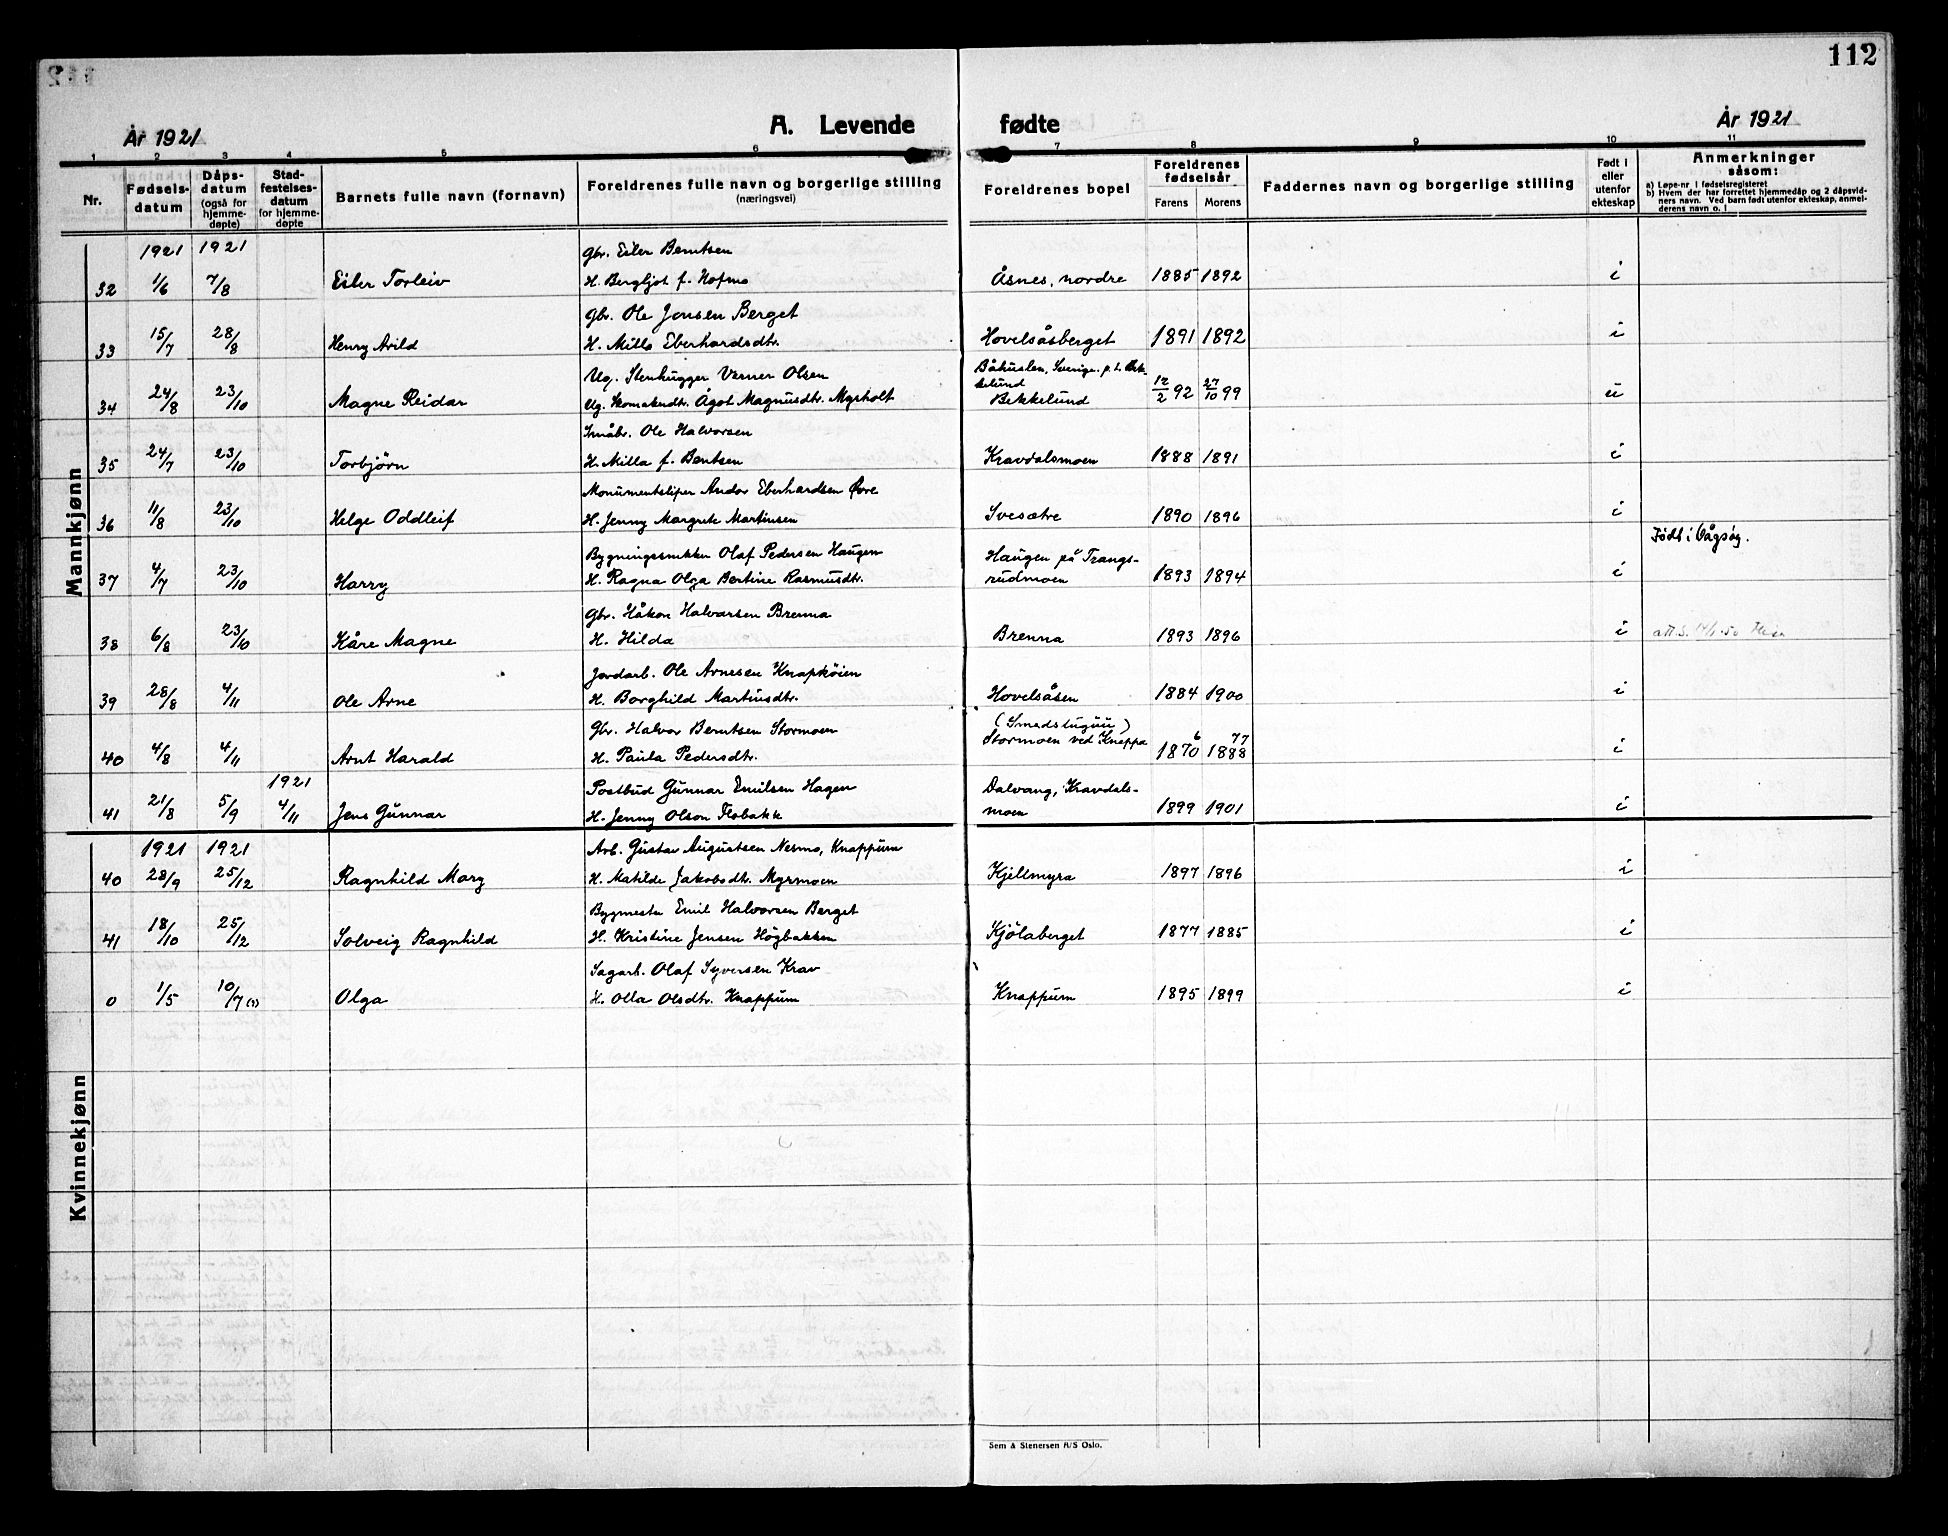 112
År 1921
A. Levende fødte
År 1921
1 2 3 4 5 6 7 8 9 10 11
Nr.
Fødsels-
datum
Dåps-
datum
(også for
hjemme-
døpte)
Stad-
festelses-
datum
for hjemme-
døpte
Barnets fulle navn (fornavn)
Foreldrenes fulle navn og borgerlige stilling
(næringsvei)
Foreldrenes bopel
Foreldrenes
fødselsår
Farens Morens
Faddernes navn og borgerlige stilling
Født i
eller
utenfor
ekteskap
Anmerkninger
såsom:
a) Løpe-nr i fødselsregisteret
b) Hvem der har forrettet hjemmedåp og 2 dåpsvid-
ners navn. Ved barn født utenfor ekteskap, anmel-
derens navn o. l
Mannkjønn
1921 1921 Gbr. Eiler Berntsen
32 1/6 7/8 Eiler Torleiv H. Bergljot f. Hofmo Åsnes, nordre 1885 1892 i
Gbr. Ole Jensen Berget
33 15/7 28/8 Henry Arild H. Milla Eberhardsdtr. Hovelsåsberget 1891 1892 i
Ug. Stenhugger Verner Olsen Båhuslen, Sverige. p. t. Bek-
kelund
34 24/8 23/10 Magne Reidar Ug. Skomakerdtr. Ågot Magnusdtr. Myrholt Bekkelund 12/2 92 27/10 99 u
Småbr. Ole Halvorsen
35 24/7 23/10 Torbjörn H. Milla f. Bentsen Kravdalsmoen 1888 1891 i
Monumentsliper Andor Eberhardsen Øvre
36 11/8 23/10 Helge Oddleif H. Jenny Margrete Martinsen Svesætre 1890 1896 i
Bygningssnikker Olaf Pedersen Haugen Haugen på Trangs- Født i Vågsöy.
37 4/7 23/10 Harry H. Ragna Olga Bertine Rasmusdtr. rudmoen 1893 1894 i
Gbr. Håkon Halvorsen Brenna
38 6/8 23/10 Kåre Magne H. Hilda Brenna 1893 1896 i
Jordarb. Ole Arnesen Knapköien
39 28/8 4/11 Ole Arne H. Borghild Martinsdtr. Hovelsåsen 1884 1900 i
Gbr. Halvor Berntsen Stormoen (Smedstuguu)
Stormoen ved Knappa 6 77
40 4/8 4/11 Arnt Harald H. Paula Pedersdtr. 1870 1888 i
1921 Postbud Gunnar Emilsen Hagen Dalvang, Kravdals-
41 21/8 5/9 4/11 Jens Gunnar H. Jenny Olson Flobakk moen 1899 1901 i
Kvinnekjønn
1921 1921 Arb. Gustav Augustsen Nesmo, Knappum
40 28/9 25/12 Ragnhild Mary H. Matilde Jakobsdtr. Myrmoen Kjellmyra 1897 1896 i
Bygmester Emil Halvorsen Berget
41 18/10 25/12 Solveig Ragnhild H. Kristine Jensen Högbakken Kjölaberget 1877 1885 i
Sagarb. Olaf Syversen Krav
0 1/5 10/7 (?) Olga H. Olla Olsdtr. Knappum Knappum 1895 1899 i
Sem & Stenersen A/S Oslo.